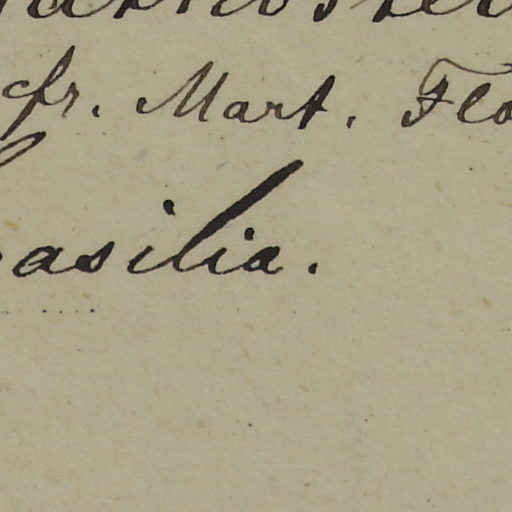 cfr. Mart. Flo
asilia.